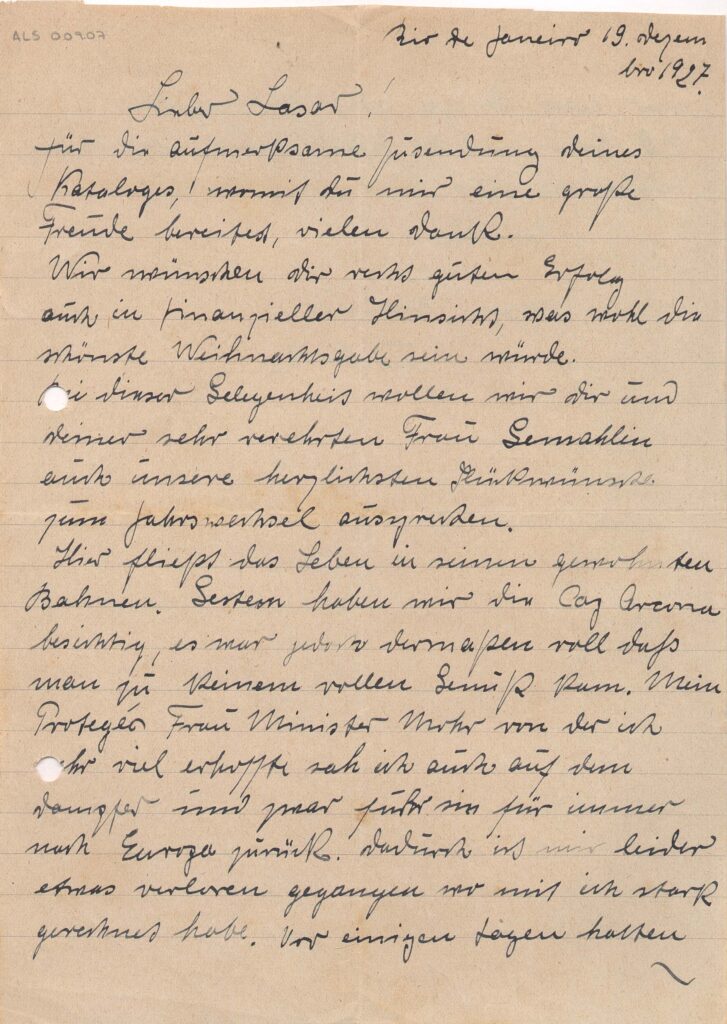 ALS 00907
Rio de Janeiro 19. dezem
bro 1927.
Lieber Lasar!
für die aufmerksame Zusendung deines
Kataloges, womit du mir eine große
Freude bereitest, vielen dank.
Wir wünschen dir recht guten Erfolg
auch in finanzieller Hinsicht, was wohl die
schönste Weihnachtsgabe sein würde.
Bei dieser Gelegenheit wollen wir dir und
deiner sehr verehrten Frau Gemahlin
auch unsere herzlichsten Glückwünsche
zum Jahrswechsel aussprechen.
Hier fließt das Leben in seinen gewohnten
Bahnen. Gestern haben wir die Cap Arcona
besichtig, es war jedoch dermaßen voll daß
man zu keinem vollen Genuß kam. Mein
Protegés Frau Minister Mohr von der ich
sehr viel erhoffte sah ich auch auf dem
dampfer und zwar fuhr sie für immer
nach Europa zurück. dadurch ist mir leider
etwas verloren gegangen wo mit ich stark
gerechnet habe. Vor einigen tagen hatten